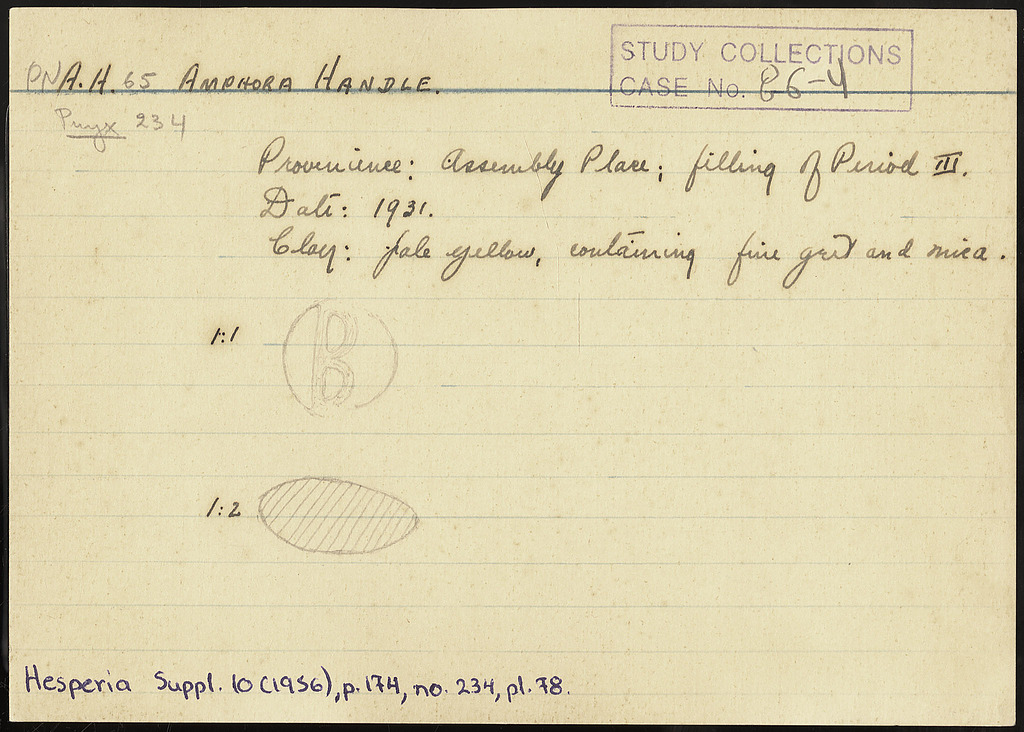 PNA.H. 65 AMPHORA HANDLE.
STUDY COLLECTIONS
CASE No. 86-4
Pnyx 234
Provenience: Assembly Place; filling of Period III.
Date: 1931.
Clay: pale yellow, containing fine grit and mica.
1:1
B
1:2
Hesperia Suppl. 10 (1956), p. 174, no. 234, pl. 78.